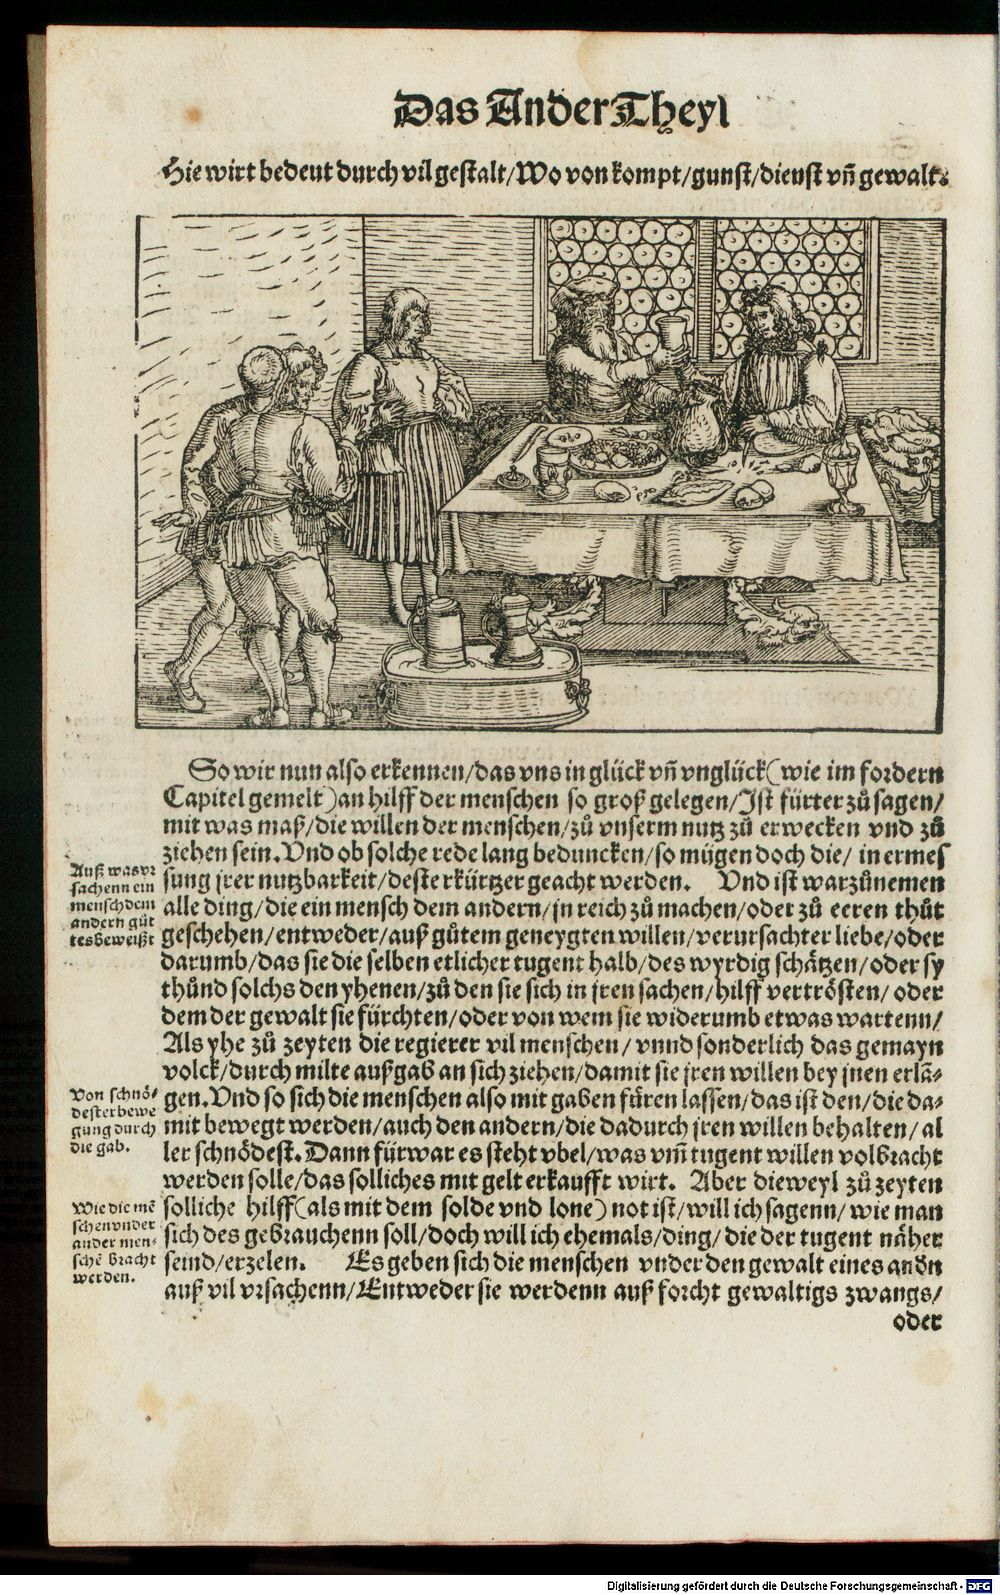 Das Ander Theyl
Hie wirt bedeut durch vil gestalt/Wo von kompt/gunst/dienst vñ gewalt.
So wir nun also erkennen/das vns in glück vñ vnglück(wie im fordern
Capitel gemelt)an hilff der menschen so groß gelegen/Ist fürter zů sagen/
mit was maß/die willen der menschen/zů vnserm nutz zů erwecken vnd zů
ziehen sein.Vnd ob solche rede lang beduncken/so mügen doch die/in ermes
sung jrer nutzbarkeit/dester kürtzer geacht werden. Vnd ist warzůnemen
alle ding/die ein mensch dem andern/jn reich zů machen/oder zů eeren thůt
geschehen/entweder/auß gůtem geneygten willen/verursachter liebe/oder
darumb/das sie die selben etlicher tugent halb/des wyrdig schätzen/oder sy
thůnd solchs den yhenen/zů den sie sich in jren sachen/hilff vertrösten/oder
dem der gewalt sie fürchten/oder von wem sie widerumb etwas wartenn/
Als yhe zů zeyten die regierer vil menschen/vnnd sonderlich das gemayn
volck/durch milte außgab an sich ziehen/damit sie jren willen bey jnen erlā-
gen.Vnd so sich die menschen also mit gaben füren lassen/das ist den/die da-
mit bewegt werden/auch den andern/die dadurch jren willen behalten/al
ler schnödest.Dann fürwar es steht vbel/was vm̃ tugent willen volbracht
werden solle/das solliches mit gelt erkaufft wirt. Aber dieweyl zů zeyten
solliche hilff(als mit dem solde vnd lone)not ist/will ich sagenn/wie man
sich des gebrauchenn soll/doch will ich ehemals/ding/die der tugent näher
seind/erzelen. Es geben sich die menschen vnder den gewalt eines andn
auß vil vrsachenn/Entweder sie werdenn auß forcht gewaltigs zwangs/
oder
Auß was vr
sachenn ein
mensch dem
andern gůt
tes beweißt
Von schnö-
dester bewe
gung durch
die gab.
Wie die mē
schen vnder
ander men-
schē bracht
werden.
Digitalisierung gefördert durch die Deutsche Forschungsgemeinschaft - DFG